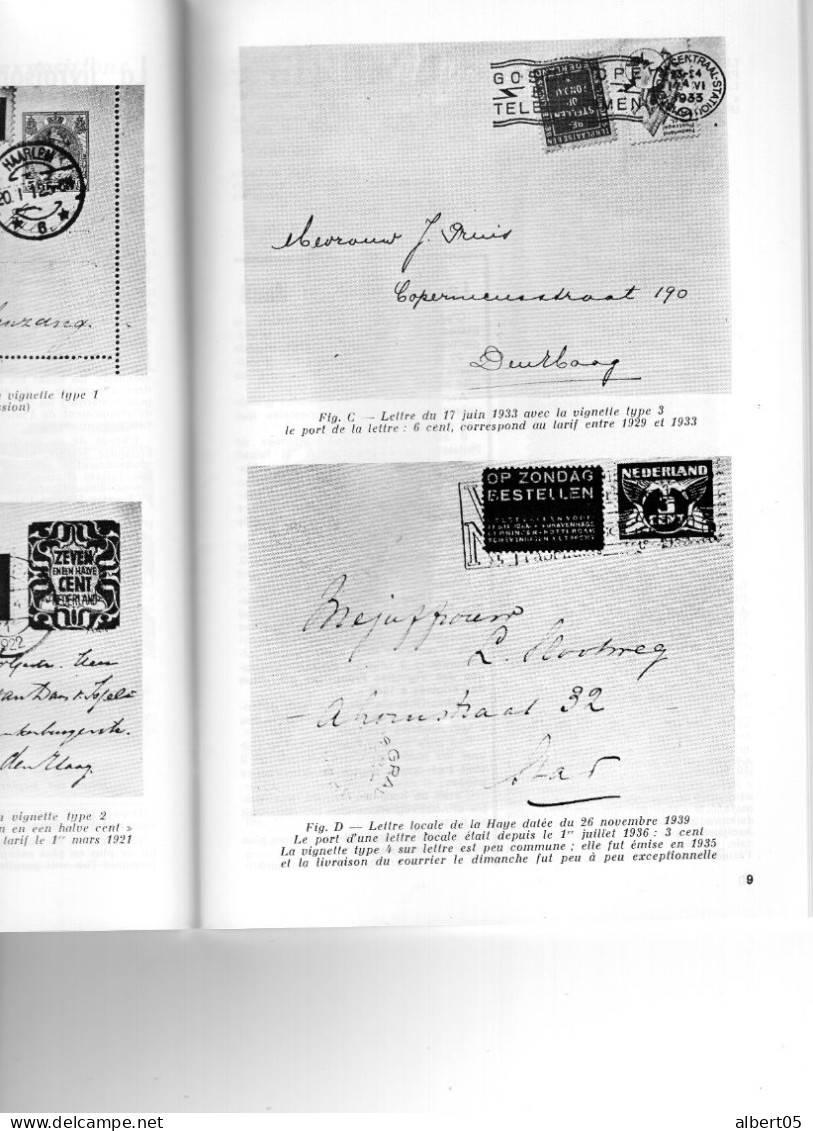 HAARLEM
20. I 12
6
vignette type 1
ssion)
ZEVEN
EN EEN HALVE
CENT
NEDERLAND
1922
den Haag
vignette type 2
n en een halve cent »
tarif le 1er mars 1921
CENTRAAL-STATION
VI
1933
TELE
BE-
STELLEN
OP
ZONDAG
Mevrouw J. Pruis
Copernicusstraat 190
Den Haag
Fig. C — Lettre du 17 juin 1933 avec la vignette type 3
le port de la lettre : 6 cent, correspond au tarif entre 1929 et 1933
OP ZONDAG
BESTELLEN
NEDERLAND
CENT
Mejuffrouw
L. Slootweg
Ahornstraat 32
Stad
GRAL
Fig. D — Lettre locale de la Haye datée du 26 novembre 1939
Le port d'une lettre locale était depuis le 1er juillet 1936 : 3 cent
La vignette type 4 sur lettre est peu commune ; elle fut émise en 1935
et la livraison du courrier le dimanche fut peu à peu exceptionnelle
9
albert05